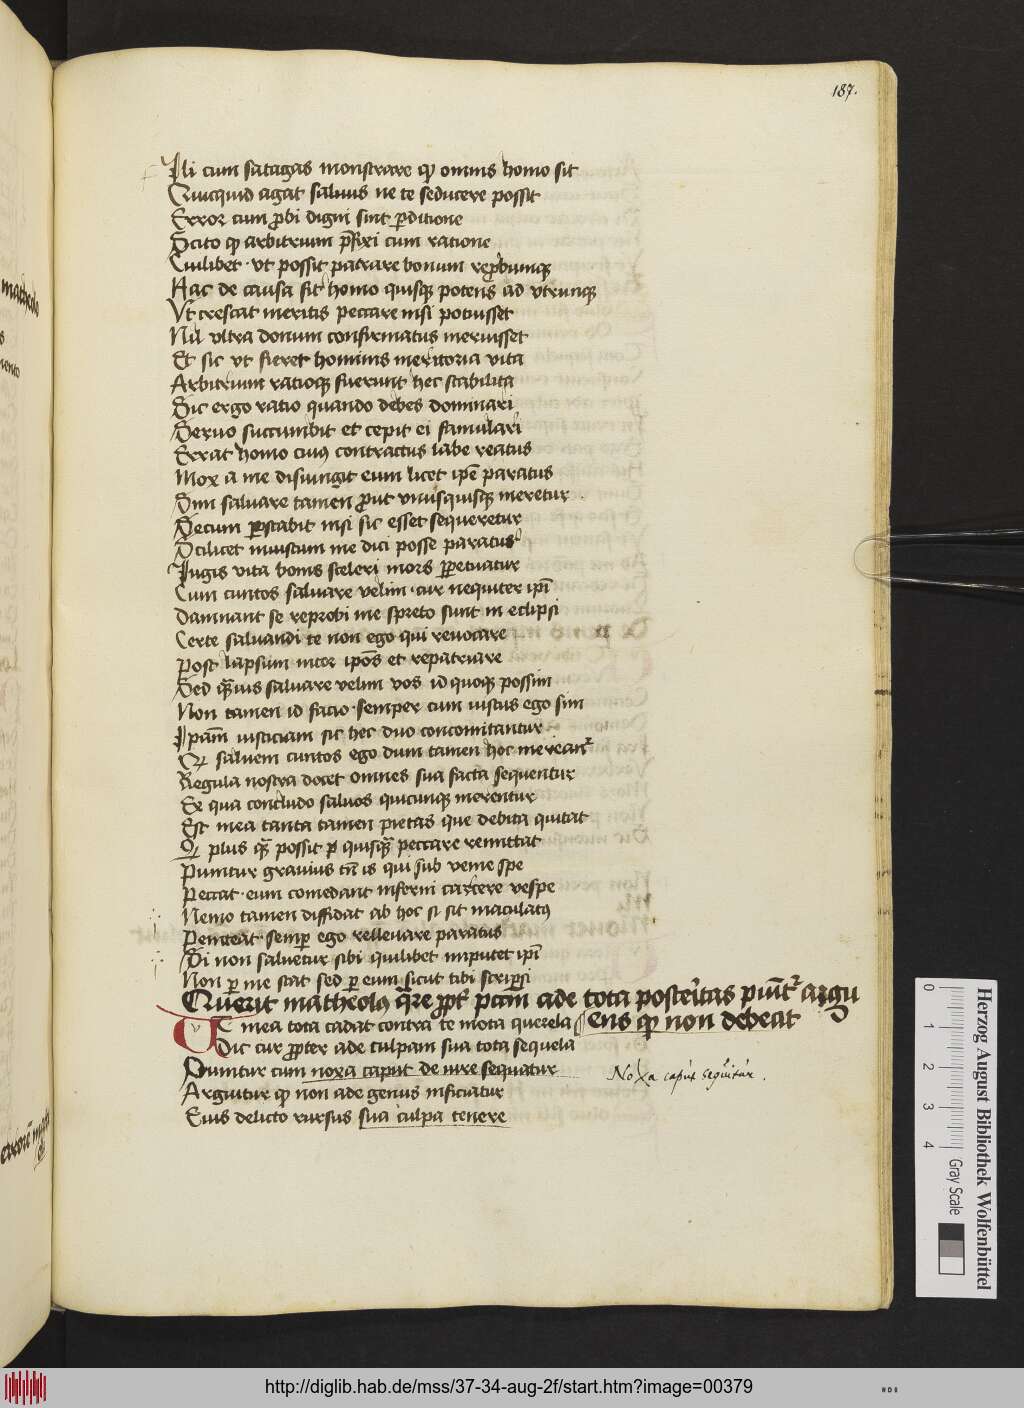 187.
Ili cum satagas monstrare qp omnis homo sit
Quicquid agat saluus ne te seducere possit
Error cum probi digni sint perditione
Scito qp arbitrium prefixi cum ratione
Cuilibet · vt possit patrare bonum reprobumque
Hac de causa fit homo quisque potens ad vtrumque
Vt crescat meritis peccare nisi potuisset
Nil vltra donum confirmatus meruisset
Et sic vt fieret hominis meritoria vita
Arbitrium ratioque fuerunt hec stabilita
Sic ergo ratio quando debes dominari
Seruo succumbit et cepit ei famulari
Errat homo cuius contractus labe reatus
Mox a me disiungit eum licet ipse paratus
Sim saluare tamen prout vnusquisque meretur
Secum perstabit nisi sic esset sequeretur
Scilicet iniustum me dici posse paratus
Iugis vita bonis sceleri mors perpetuatur
Cum cunctos saluare velim · cur nequiter ipsi
Damnant se reprobi me spreto sunt in eclipsi
Certe saluandi te non ego qui reuocare
Post lapsum nitor ipsos et repatriare
Sed quamuis saluare velim vos id quoque possim
Non tamen id facio · semper cum iustus ego sim
Ipsam iusticiam sic hec duo concomitantur
Qp saluem cunctos ego dum tamen hoc mereantur
Regula nostra docet omnes sua facta sequentur
Ex qua concludo saluos quicumque merentur
Est mea tanta tamen pietas que debita quitat
Qp plus quam possit per quisquam peccare remittat
Punitur grauius tamen is qui sub venie spe
Peccat · eum comedant inferni carcere vespe
Nemo tamen diffidat ab hoc si sit maculatus
Peniteat · semper ego relleuare paratus
Si non saluetur sibi quilibet imputet ipsi
Non per me stat sed per eum sicut tibi scripsi
Querit matheolus quare propter peccatum ade tota posteritas punitur argu
ens qp non debeat
VT mea tota cadat contra te mota querela
Dic cur propter ade culpam sua tota sequela
Punitur cum noxa caput de iure sequatur
Noxa caput sequitur.
Arguitur qp non ade genus inficiatur
Eius delicto rursus sua culpa tenere
Herzog August Bibliothek Wolfenbüttel
0 1 2 3 4
Gray Scale
http://diglib.hab.de/mss/37-34-aug-2f/start.htm?image=00379